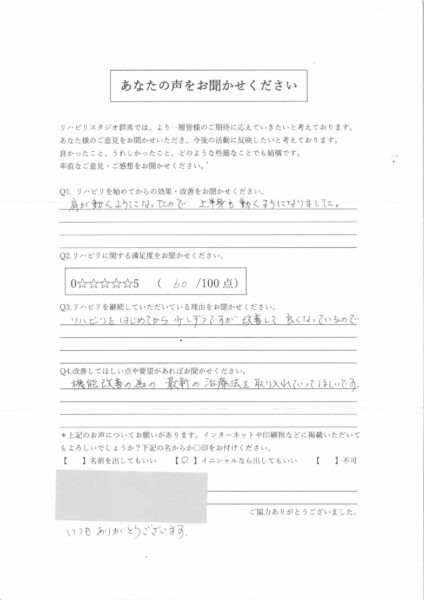 あなたの声をお聞かせください
リハビリスタジオ群馬では、より一層皆様のご期待に応えていきたいと考えております。
あなた様のご意見をお聞かせいただき、今後の活動に反映したいと考えております。
良かったこと、うれしかったこと、どのような些細なことでも結構です。
率直なご意見・ご感想をお聞かせください。
Q1. リハビリを始めてからの効果・改善をお聞かせください。
肩が動くようになったので 上半身も動くようになりました。
Q2.リハビリに関する満足度をお聞かせください。
0☆☆☆☆☆5 ( 60 /100点)
Q3.リハビリを継続していただいている理由をお聞かせください。
リハビリをはじめてから 少しずつですが 改善して 良くなっているので
Q4.改善してほしい点や要望があればお聞かせください。
機能改善の為の 最新の治療法を取り入れていってほしいです。
＊上記のお声についてお願いがあります。インターネットや印刷物などに掲載いただいて
もよろしいでしょうか？下記の名からか○印をお付けください。
【 】名前を出してもいい 【○】イニシャルなら出してもいい 【 】不可
ご協力ありがとうございました。
いつも ありがとうございます。